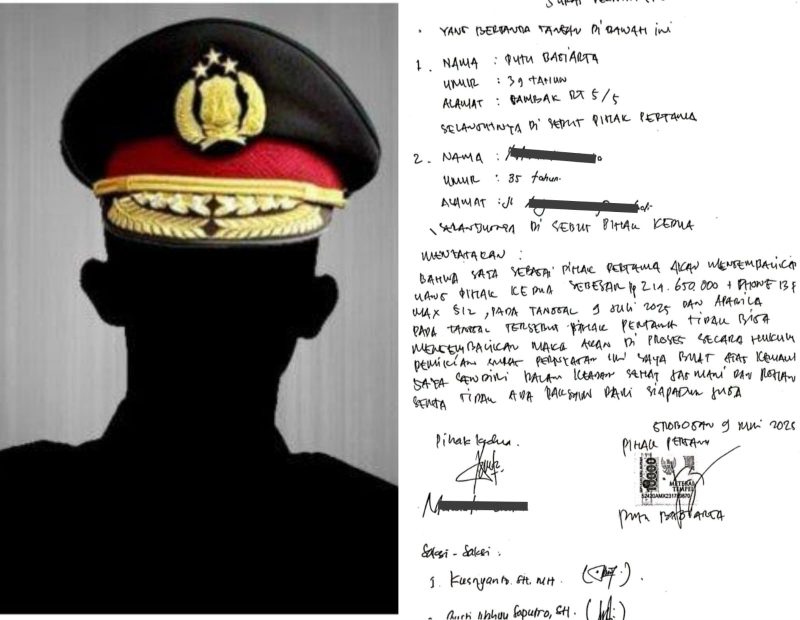 SURAT
YANG BERTANDA TANGAN DI BAWAH ini
1. NAMA : PUTU BAGIARTA
UMUR : 39 TAHUN
ALAMAT : RT 5/5
SELANJUTNYA DI SEBUT PIHAK PERTAMA
2. NAMA :
UMUR : 35 tahun
ALAMAT : Jl
SELANJUTNYA DI SEBUT PIHAK KEDUA
MENYATAKAN :
BAHWA SAYA SEBAGAI PIHAK PERTAMA AKAN MENGEMBALIKAN
UANG PIHAK KEDUA SEBESAR Rp 214.650.000 +
MAX 512, PADA TANGGAL 9 JULI 2025 DAN APABILA
PADA TANGGAL TERSEBUT PIHAK PERTAMA TIDAK BISA
MENGEMBALIKAN MAKA AKAN DI PROSES SECARA HUKUM
DEMIKIAN SURAT PERNYATAAN INI SAYA BUAT ATAS
SAYA SENDIRI DALAM KEADAAN SEHAT JASMANI DAN
SERTA TIDAK ADA PAKSAAN DARI SIAPAPUN JUGA
GROBOGAN 9 2025
Pihak Kedua.
PIHAK PERTAMA
10000
METERAI
TEMPEL
PUTU BAGIARTA
Saksi - Saksi :
1. Kusnyanto. SH. MH.
Saputro, SH.